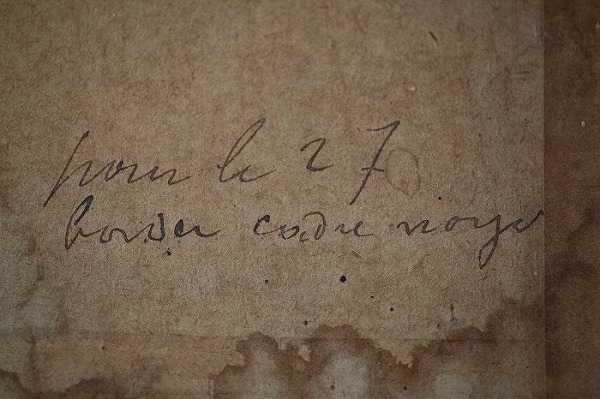 pour le 27
border cadre noyer